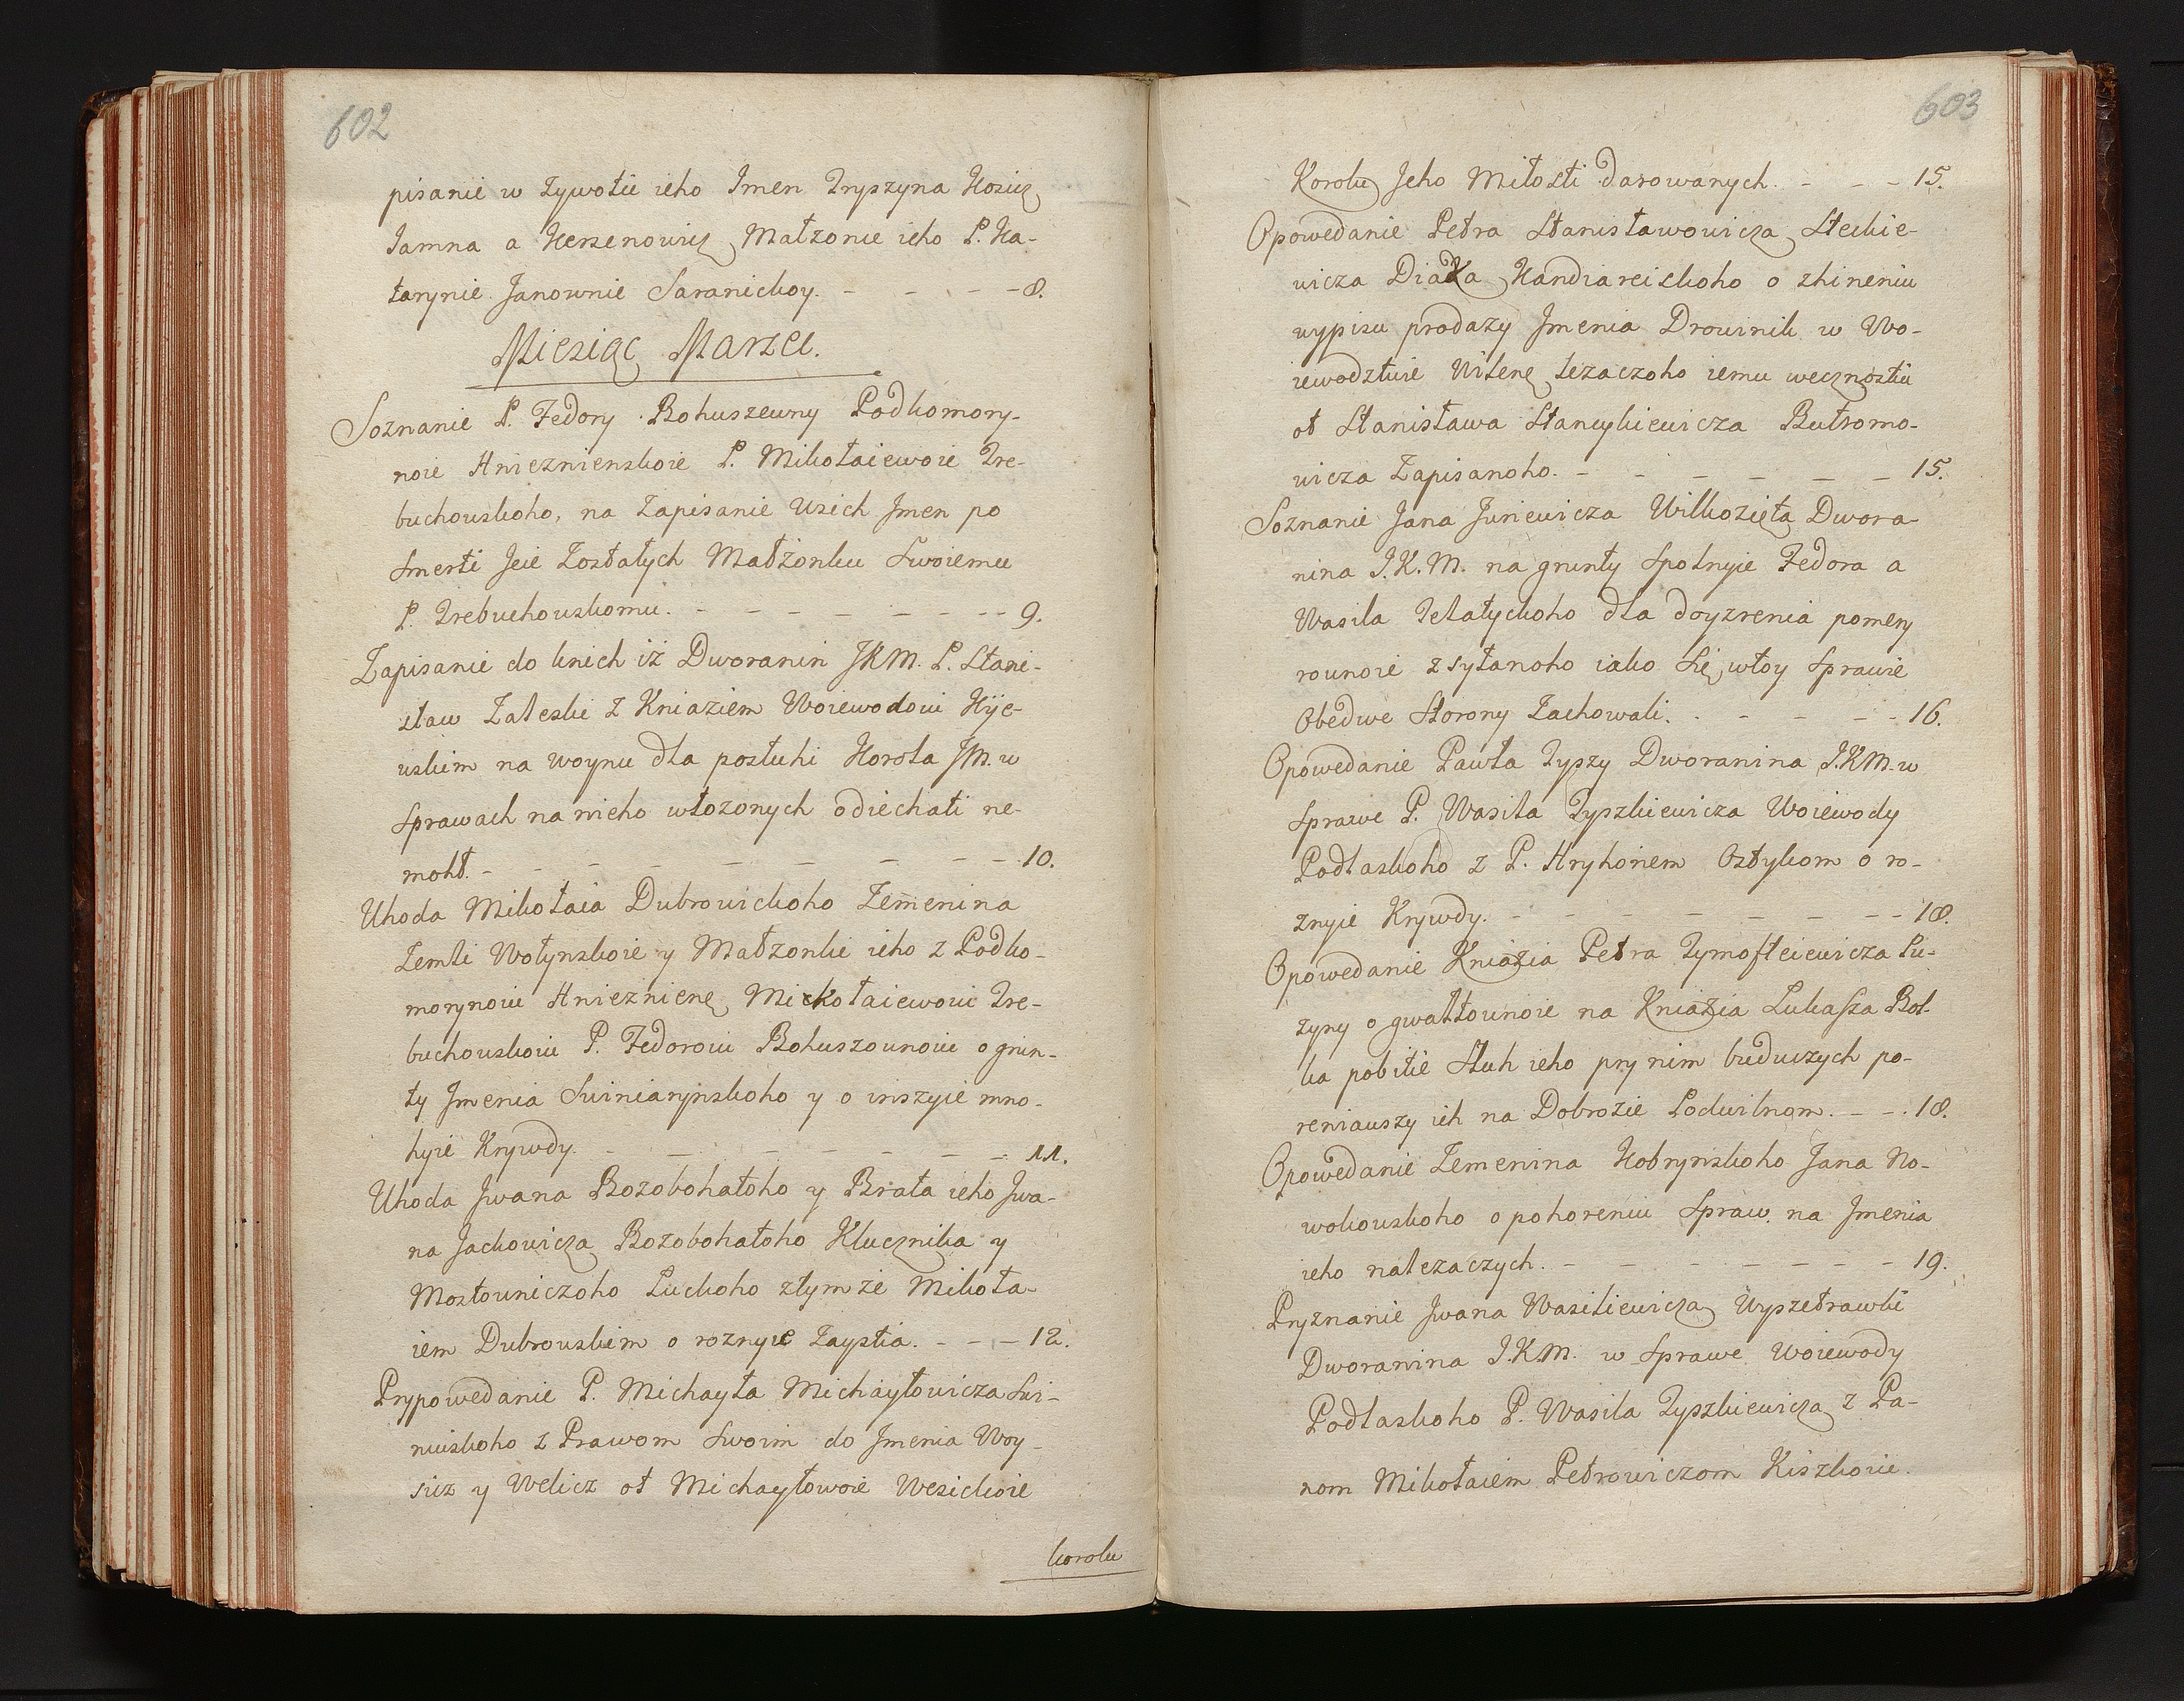 602
pisanie w Zywotie ieho Imen Tryszyna Kosicz
Jamna a Herzenowicz Małzonie ieho P. Ka-
tarynie Janownie Saranickoy. - - - - 8.
Miesiąc Marzec.
Soznanie P. Fedory Bohuszewny Podkomory-
noie Hniezienskoie P. Mikołaiewoie Tre-
buchouskoho, na Zapisanie Usich Jmen po
Smerti Jeie Zostałych Małżonku Swoiemu
P. Trebuchouskomu. - - - - - - - 9.
Zapisanie do knich iż Dworanin JKM. P. Stani-
sław Zaleski Z Kniaziem Woiewodoiu Kije-
uskim na woynu dla posłuhi Korola JM. w
Sprawach na nieho włozonych odiechati ne-
mohł. - - - - - - - - 10.
Uhoda Mikołaia Dubrowickoho Zemenina
Zemli Wołynskoie y Małzonki ieho z Podko-
morynoiu Hniezniene Mickołaiewoiu Tre-
buchouskoiu P. Fedoroiu Bohuszounoiu o grun-
ty Jmenia Swiniaryńskoho y o inszyie mno-
hyie Krywdy. - - - - - - - 11.
Uhoda Jwana Bozobohatoho y Brata ieho Jwa-
na Jackowicza Bozobohatoho Klucznika y
Mostouniczoho Łuckoho z tym że Mikoła-
iem Dubrouskim o roznyie Zaystia. - - - 12.
Prypowedanie P. Michayła Michayłowicza Swi-
nuiskoho z Prawom Swoim do Jmenia Woy-
siz y Welicz ot Michayłowoie Wesickoie
korolu
603
Korolu Jeho Miłosti darowanych. - - - 15.
Opowedanie Petra Stanisławowicza Steckie-
wicza Diaka Handiareiskoho o zhineniu
wypisu prodazy Jmenia Drowinik w Wo-
iewodztwie Wilene lezaczoho iemu wecznostiu
ot Stanisława Stancykiewicza Butromo-
wicza Zapisanoho. - - - - - - 15.
Soznanie Jana Juriewicza Wilkozięta Dwora-
nina J.K.M. na grunty Spolnyie Fedora a
Wasila Jełatyckoho dla doyzrenia pomery
rounoie zsyłanoho iako Się w toy Sprawie
Obedwe Storony Zachowali. - - - - - 16.
Opowedanie Pawła Tyszy Dworanina J.K.M. w
Sprawe P. Wasila Tyszkiewicza Woiewody
Podlaskoho z P. Hryhoriem Ostykom o ro-
znyie Krywdy. - - - - - - - - 18.
Opowedanie Kniazia Petra Tymofteiewicza Pu-
zyny o gwałtounoie na Kniazia Lukasza Bol-
ka pobitie Słuh ieho pry nim buduczych po-
reniauszy ich na Dobrozie Poduilnom. - - 18.
Opowedanie Zemenina Kobrynskoho Jana No-
wokouskoho o pohoreniu Spraw na Jmenia
ieho nalezaczych. - - - - - - - 19.
Pryznanie Jwana Wasiliewicza Wyszetrawki
Dworanina J.K.M. w Sprawe Woiewody
Podlaskoho P. Wasila Tyszkiewicza z Pa-
nom Mikołaiem Petrowiczom Kiszkoiu.